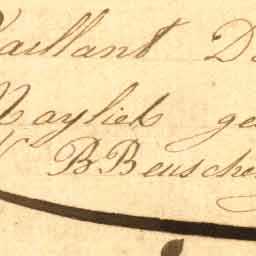 Vaillant D
Maylied ge
B Beusche